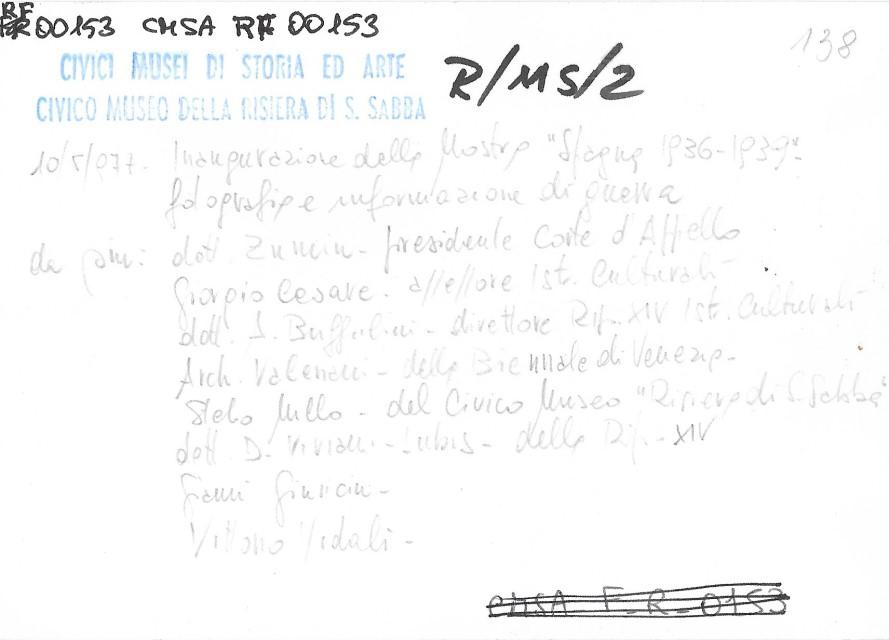 RF
FR 00153 CMSA RF 00153
138
CIVICI MUSEI DI STORIA ED ARTE
CIVICO MUSEO DELLA RISIERA DI S. SABBA
R/MS/2
10/5/977. Inaugurazione della Mostra "Spagna 1936-1939"-
fotografia e informazione di guerra
da sin: dott. Zumin - presidente Corte d'Appello
Giorgio Cesare. assessore Ist. Culturali
dott. S. - direttore Rip. XIV Ist. Culturali
Arch. - della Biennale di Venezia -
- del Civico Museo "Risiera di S. Sabba"
dott. D. Viviani - - della Rip. - XIV
Gianni Giuricin -
Vittorio Vidali -
CMSA F-R-0153